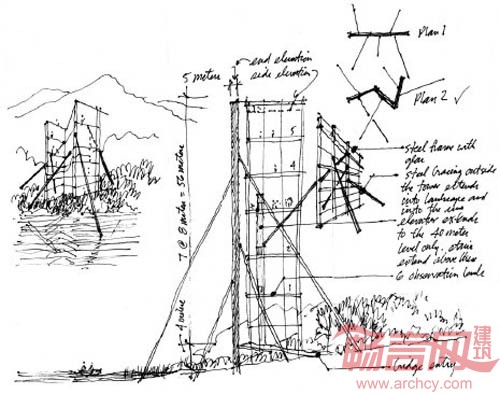 Plan 1
Plan 2 ✓
end elevation
side elevation
5 meters
6
5
4
7 @ 8 meter = 56 metere
steel frame with
glan
steel bracing outside
the tower extends
into landscape and
into the
elevator extends
to the 40 meter
level only. stairs
extend above
6 observation
1
bridge entry
畅言网
建筑
www.archcy.com